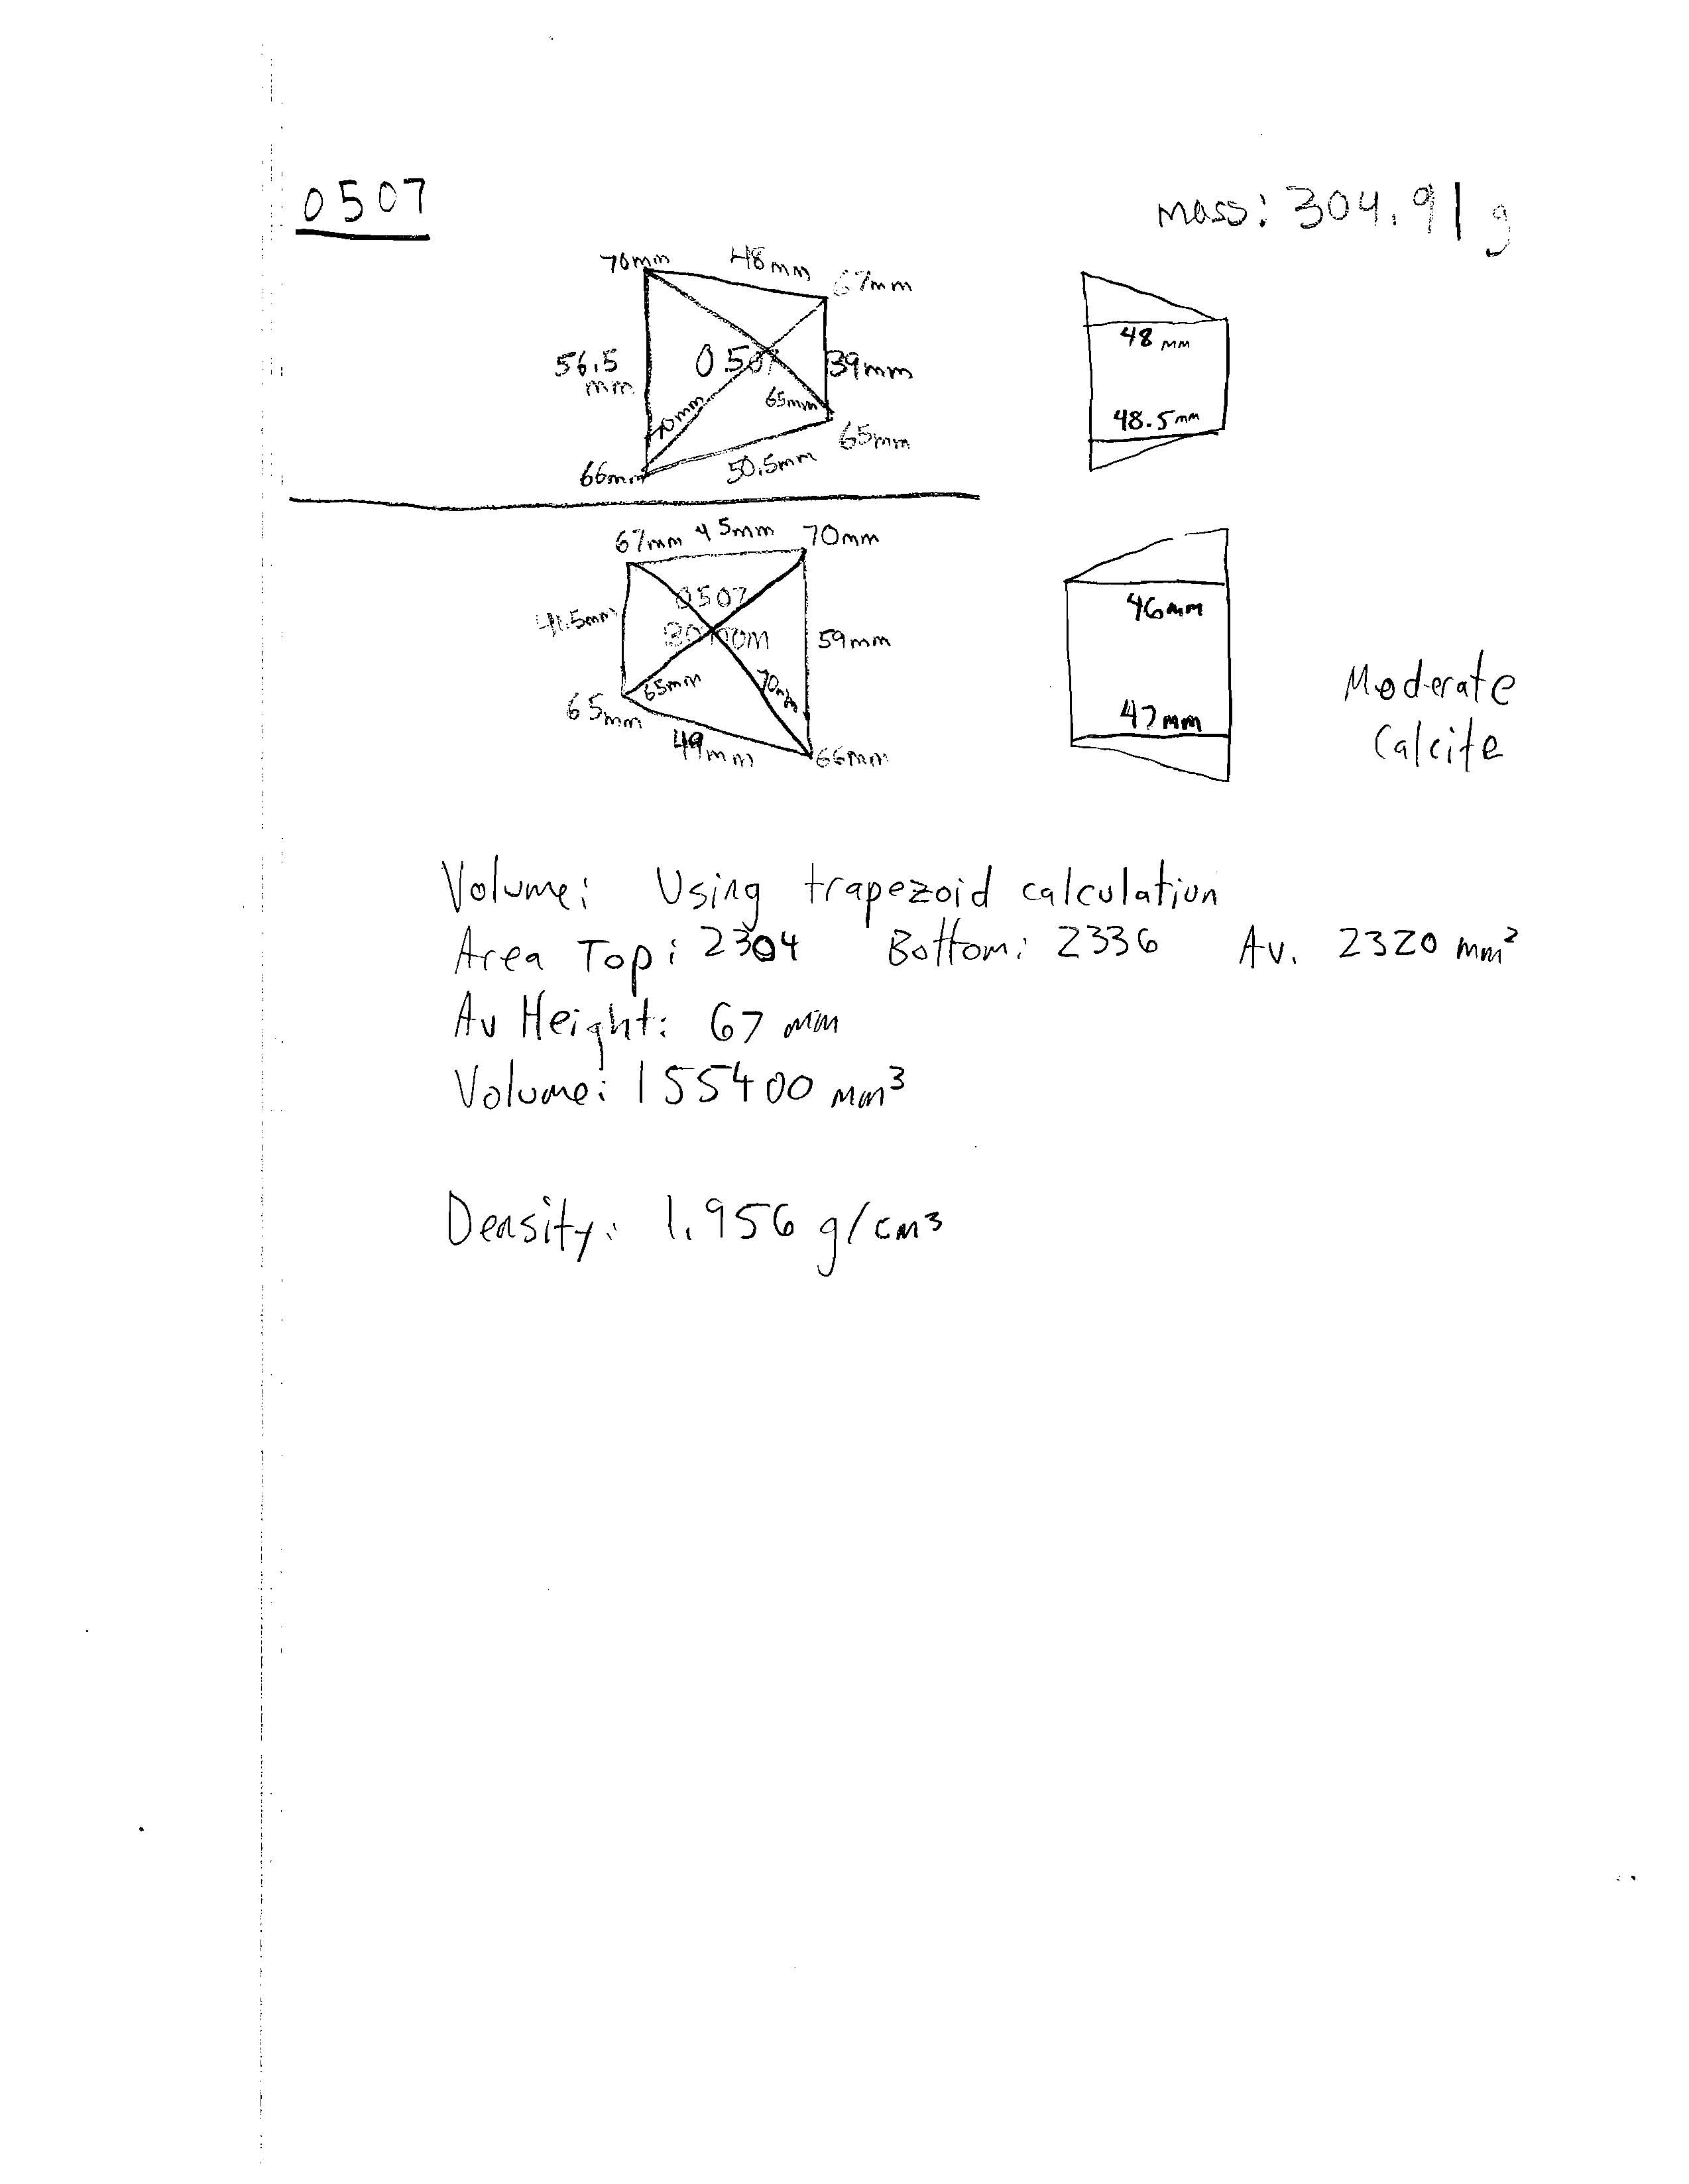 0507
mass: 304.91 g
70mm 48mm 67mm
56.5 mm 0507 39mm
70mm 65mm
66mm 50.5mm 65mm
48 mm
48.5mm
67mm 45mm 70mm
41.5mm 0507 59mm
BOTTOM
65mm 65mm 70mm
49mm 66mm
46mm
47mm
Moderate
Calcite
Volume: Using trapezoid calculation
Area Top: 2304 Bottom: 2336 Av. 2320 mm²
Av Height: 67 mm
Volume: 155400 mm³
Density: 1.956 g/cm³